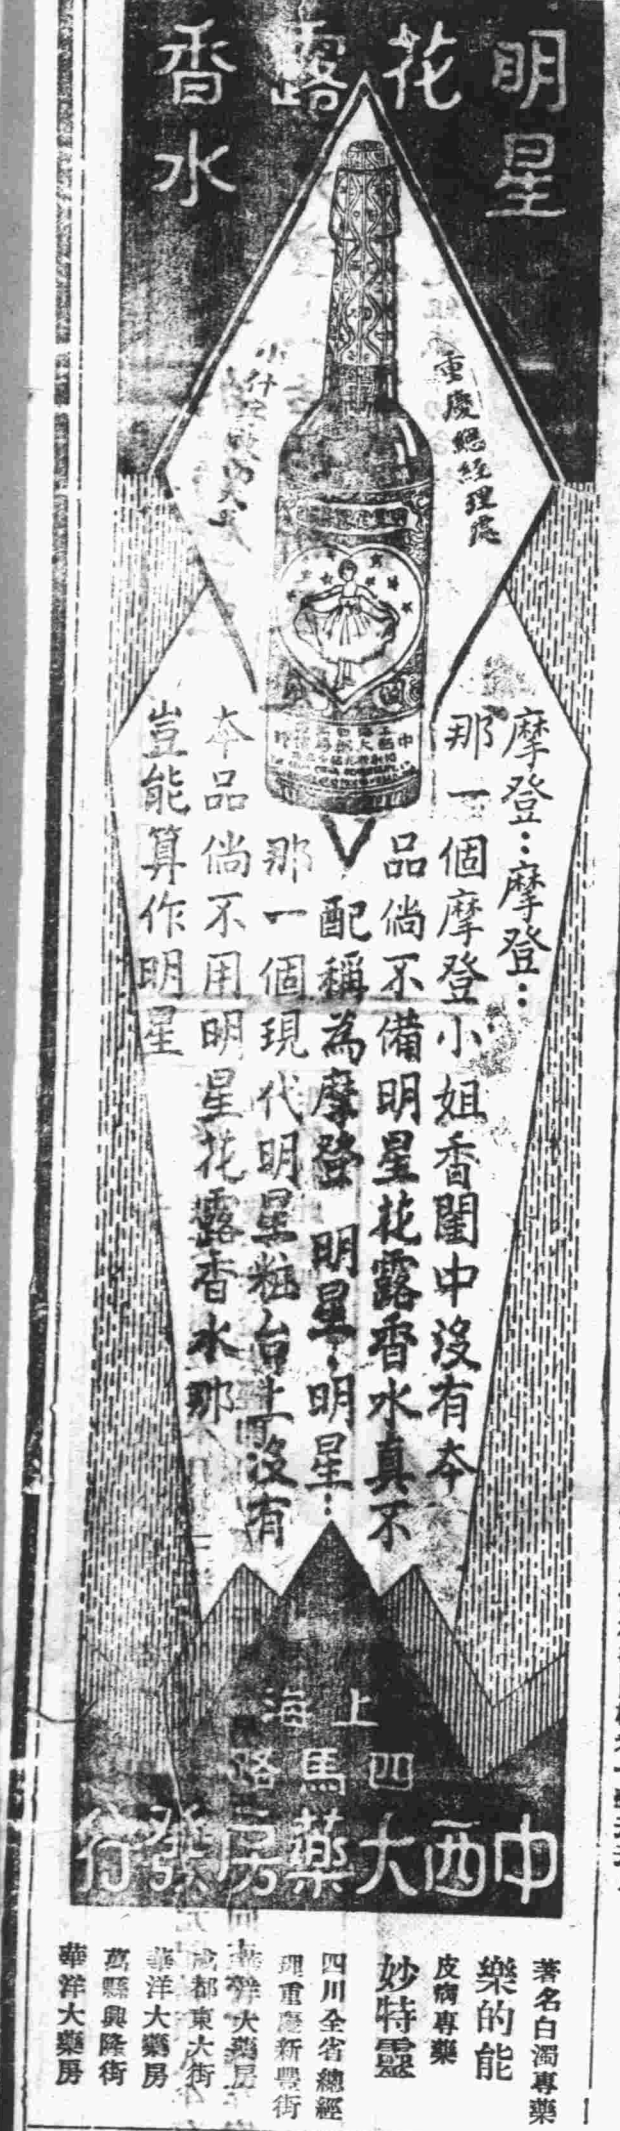 明星
花
露
香水
重慶總經理處
摩登：摩登：
那一個摩登小姐香閨中沒有本
品倘不備明星花露香水真不
配稱為摩登　明星：明星：
那一個現代明星粧台上沒有
本品倘不用明星花露香水那
豈能算作明星
上海
四馬路
中西大藥房發行
著名白濁專藥
樂的能
皮病專藥
妙特靈
四川全省總經
理重慶新豐街
華洋大藥房
成都東大街
華洋大藥房
萬縣興隆街
華洋大藥房